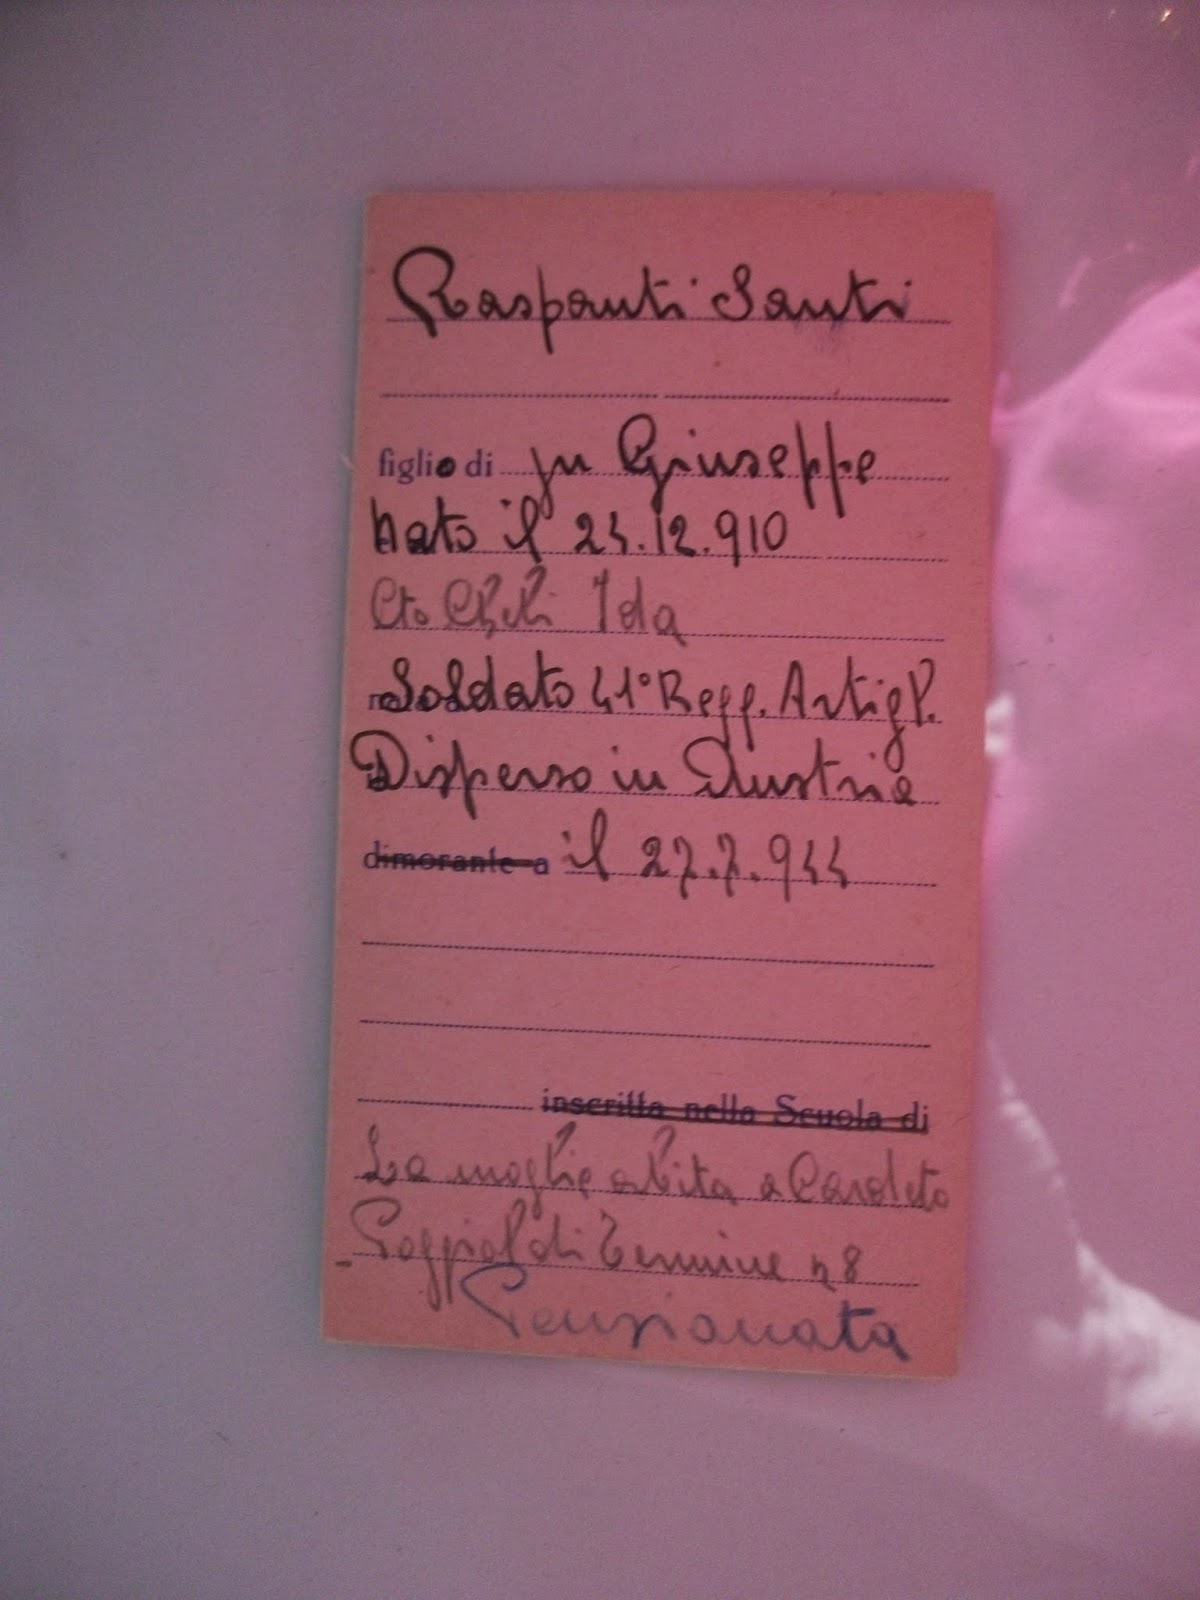 Raspanti Santi
figlio di fu Giuseppe
Nato il 24.12.910
Cto Ida
Soldato 41° Regg. Artigl.
Disperso in Austria
dimorante a il 27.7.944
inscritta nella Scuola di
La moglie abita a Cardeto
Poggiol di Termine n 8
Pensionata